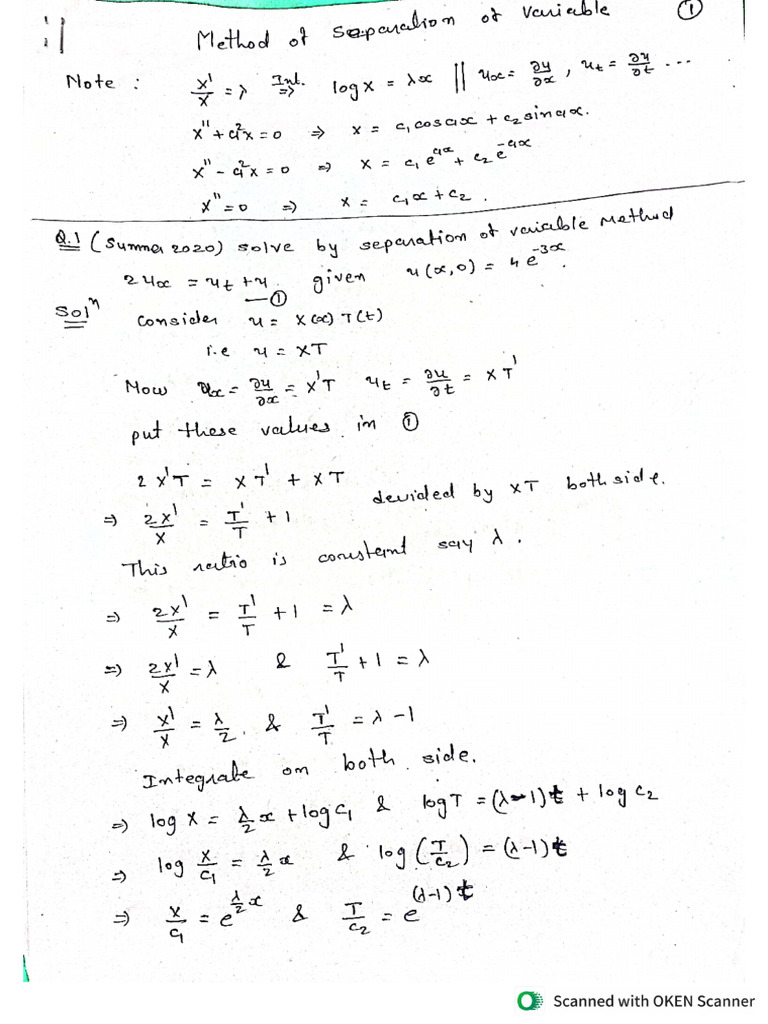 Method of Separation of Variable ①
Note : X'/X = λ Int. ⇒ log X = λx || ux = ∂u/∂x , ut = ∂u/∂t ...
X'' + a²x = 0 ⇒ x = c₁ cosax + c₂ sinax.
X'' - a²x = 0 ⇒ x = c₁ e^{ax} + c₂ e^{-ax}
X'' = 0 ⇒ x = c₁x + c₂ .
Q.1 (Summer 2020) solve by separation of variable Method
2ux = ut + u —① given u(x,0) = 4e^{-3x}.
Solⁿ consider u = X(x) T(t)
i.e u = XT
Now ux = ∂u/∂x = X'T ut = ∂u/∂t = XT'
put these values in ①
2X'T = XT' + XT
devided by XT both side.
⇒ 2X'/X = T'/T + 1
This ratio is constant say λ.
⇒ 2X'/X = T'/T + 1 = λ
⇒ 2X'/X = λ & T'/T + 1 = λ
⇒ X'/X = λ/2 . & T'/T = λ - 1
Integrate on both side.
⇒ log X = λ/2 x + log c₁ & log T = (λ-1)t + log c₂
⇒ log X/c₁ = λ/2 x & log (T/c₂) = (λ-1)t
⇒ X/c₁ = e^{λ/2 x} & T/c₂ = e^{(λ-1)t}
Scanned with OKEN Scanner